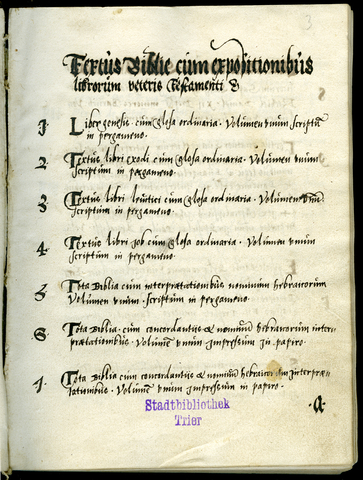 3
Textus Biblie cum expositionibus
librorum veteris Testamenti &
1 Liber genesis cum glosa ordinaria. Volumen vnum scriptū
in pergameno.
2. Textus libri exodi cum glosa ordinaria. Volumen vnum
scriptum in pergameno.
3 Textus libri leuitici cum glosa ordinaria. Volumen vnū
scriptum in pergameno.
4. Textus libri Job cum glosa ordinaria. Volumen vnum
scriptum in pergameno.
5 Tota Biblia cum interprætationibus nominum hebraicorum
Volumen vnum. scriptum in pergameno.
6 Tota Biblia. cum concordantiis & nominū hebraicorum inter-
prætationibus. Volumē vnum impressum in papiro.
7. Tota Biblia cum concordantiis & nominū hebraicorum interpræ-
tationibus. Volumē vnum impressum in papiro.
a
Stadtbibliothek
Trier